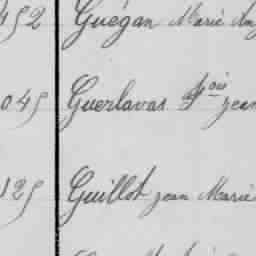 452 Guégan Marie
045 Guerlavas Fois jean
125 Guillot jean Marie